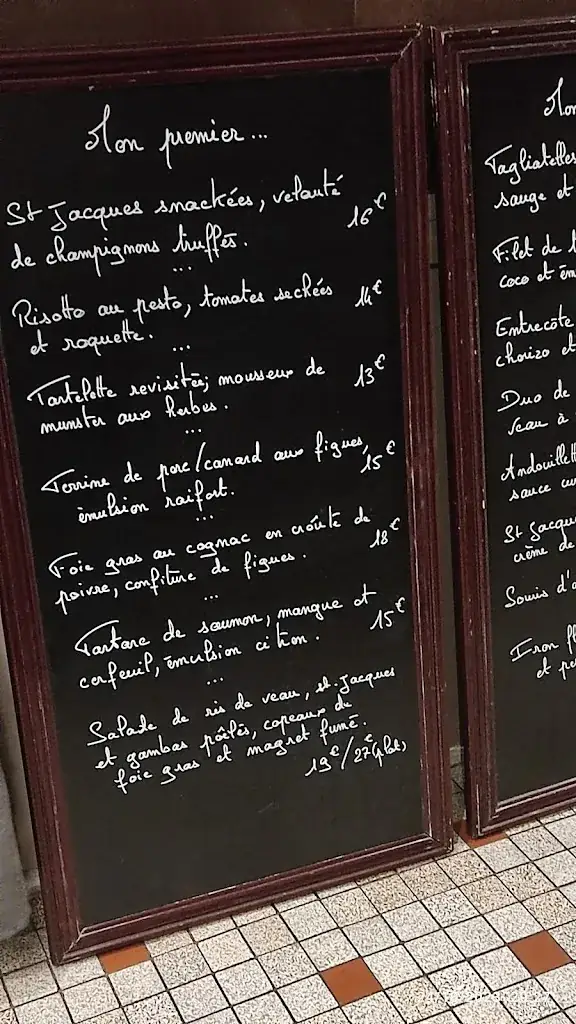 Mon premier...
St Jacques snackées, velouté
de champignons truffés. 16€
...
Risotto au pesto, tomates sechées
et roquette. 14€
...
Tartelette revisitée; mousseux de
munster aux herbes. 13€
...
Terrine de porc/canard aux figues,
émulsion raifort. 15€
...
Foie gras au cognac en croûte de
poivre, confiture de figues. 18€
...
Tartare de saumon, mangue et
cerfeuil, émulsion citron. 15€
...
Salade de ris de veau, st. Jacques
et gambas poêlés, copeaux de
foie gras et magret fumé.
19€/27€(plat)
Tagliatelles
sauge et
Filet de
coco et
Entrecôte
chorizo et
Duo de
veau à
Andouillett
sauce
St Jacque
crème de
Souris d'a
et